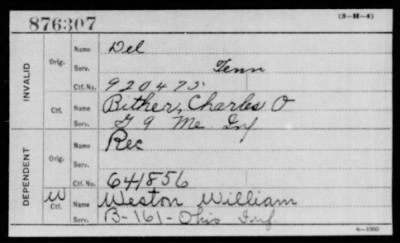 876307 (3-H-4)
INVALID
Orig. Name Del
Serv. Tenn
Ctf. No. 920475
Ctf. Name Bither, Charles O
Serv. F 9 Me Inf
DEPENDENT
Orig. Name Rec
Serv.
Ctf. No. 641856
W Ctf. Name Weston William
Serv. B-161-Ohio Inf.